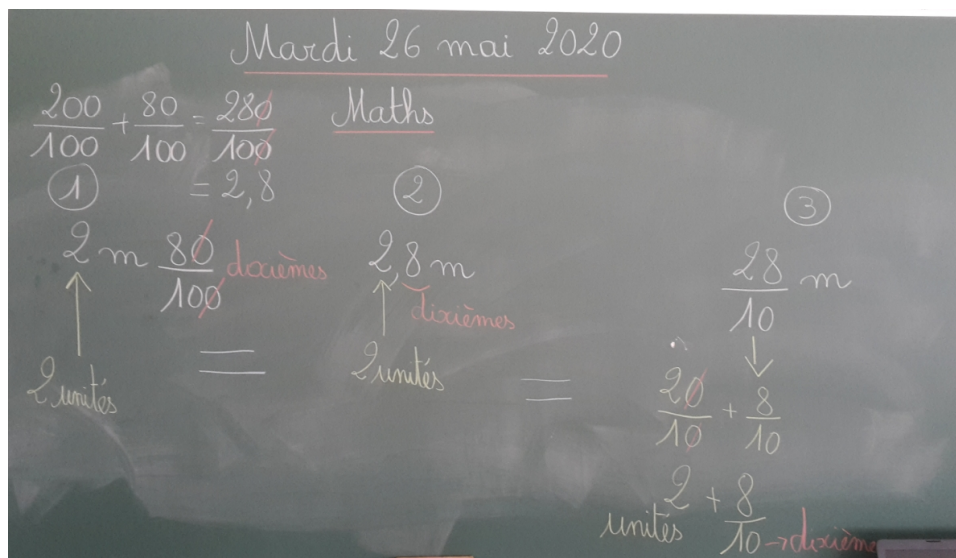 Mardi 26 mai 2020
Maths
200/100 + 80/100 = 280/100
= 2,8
1
2 m 80/100 dixièmes
2 unités
=
2
2,8 m
dixièmes
2 unités
=
3
28/10 m
20/10 + 8/10
2 + 8/10 → dixième
unités